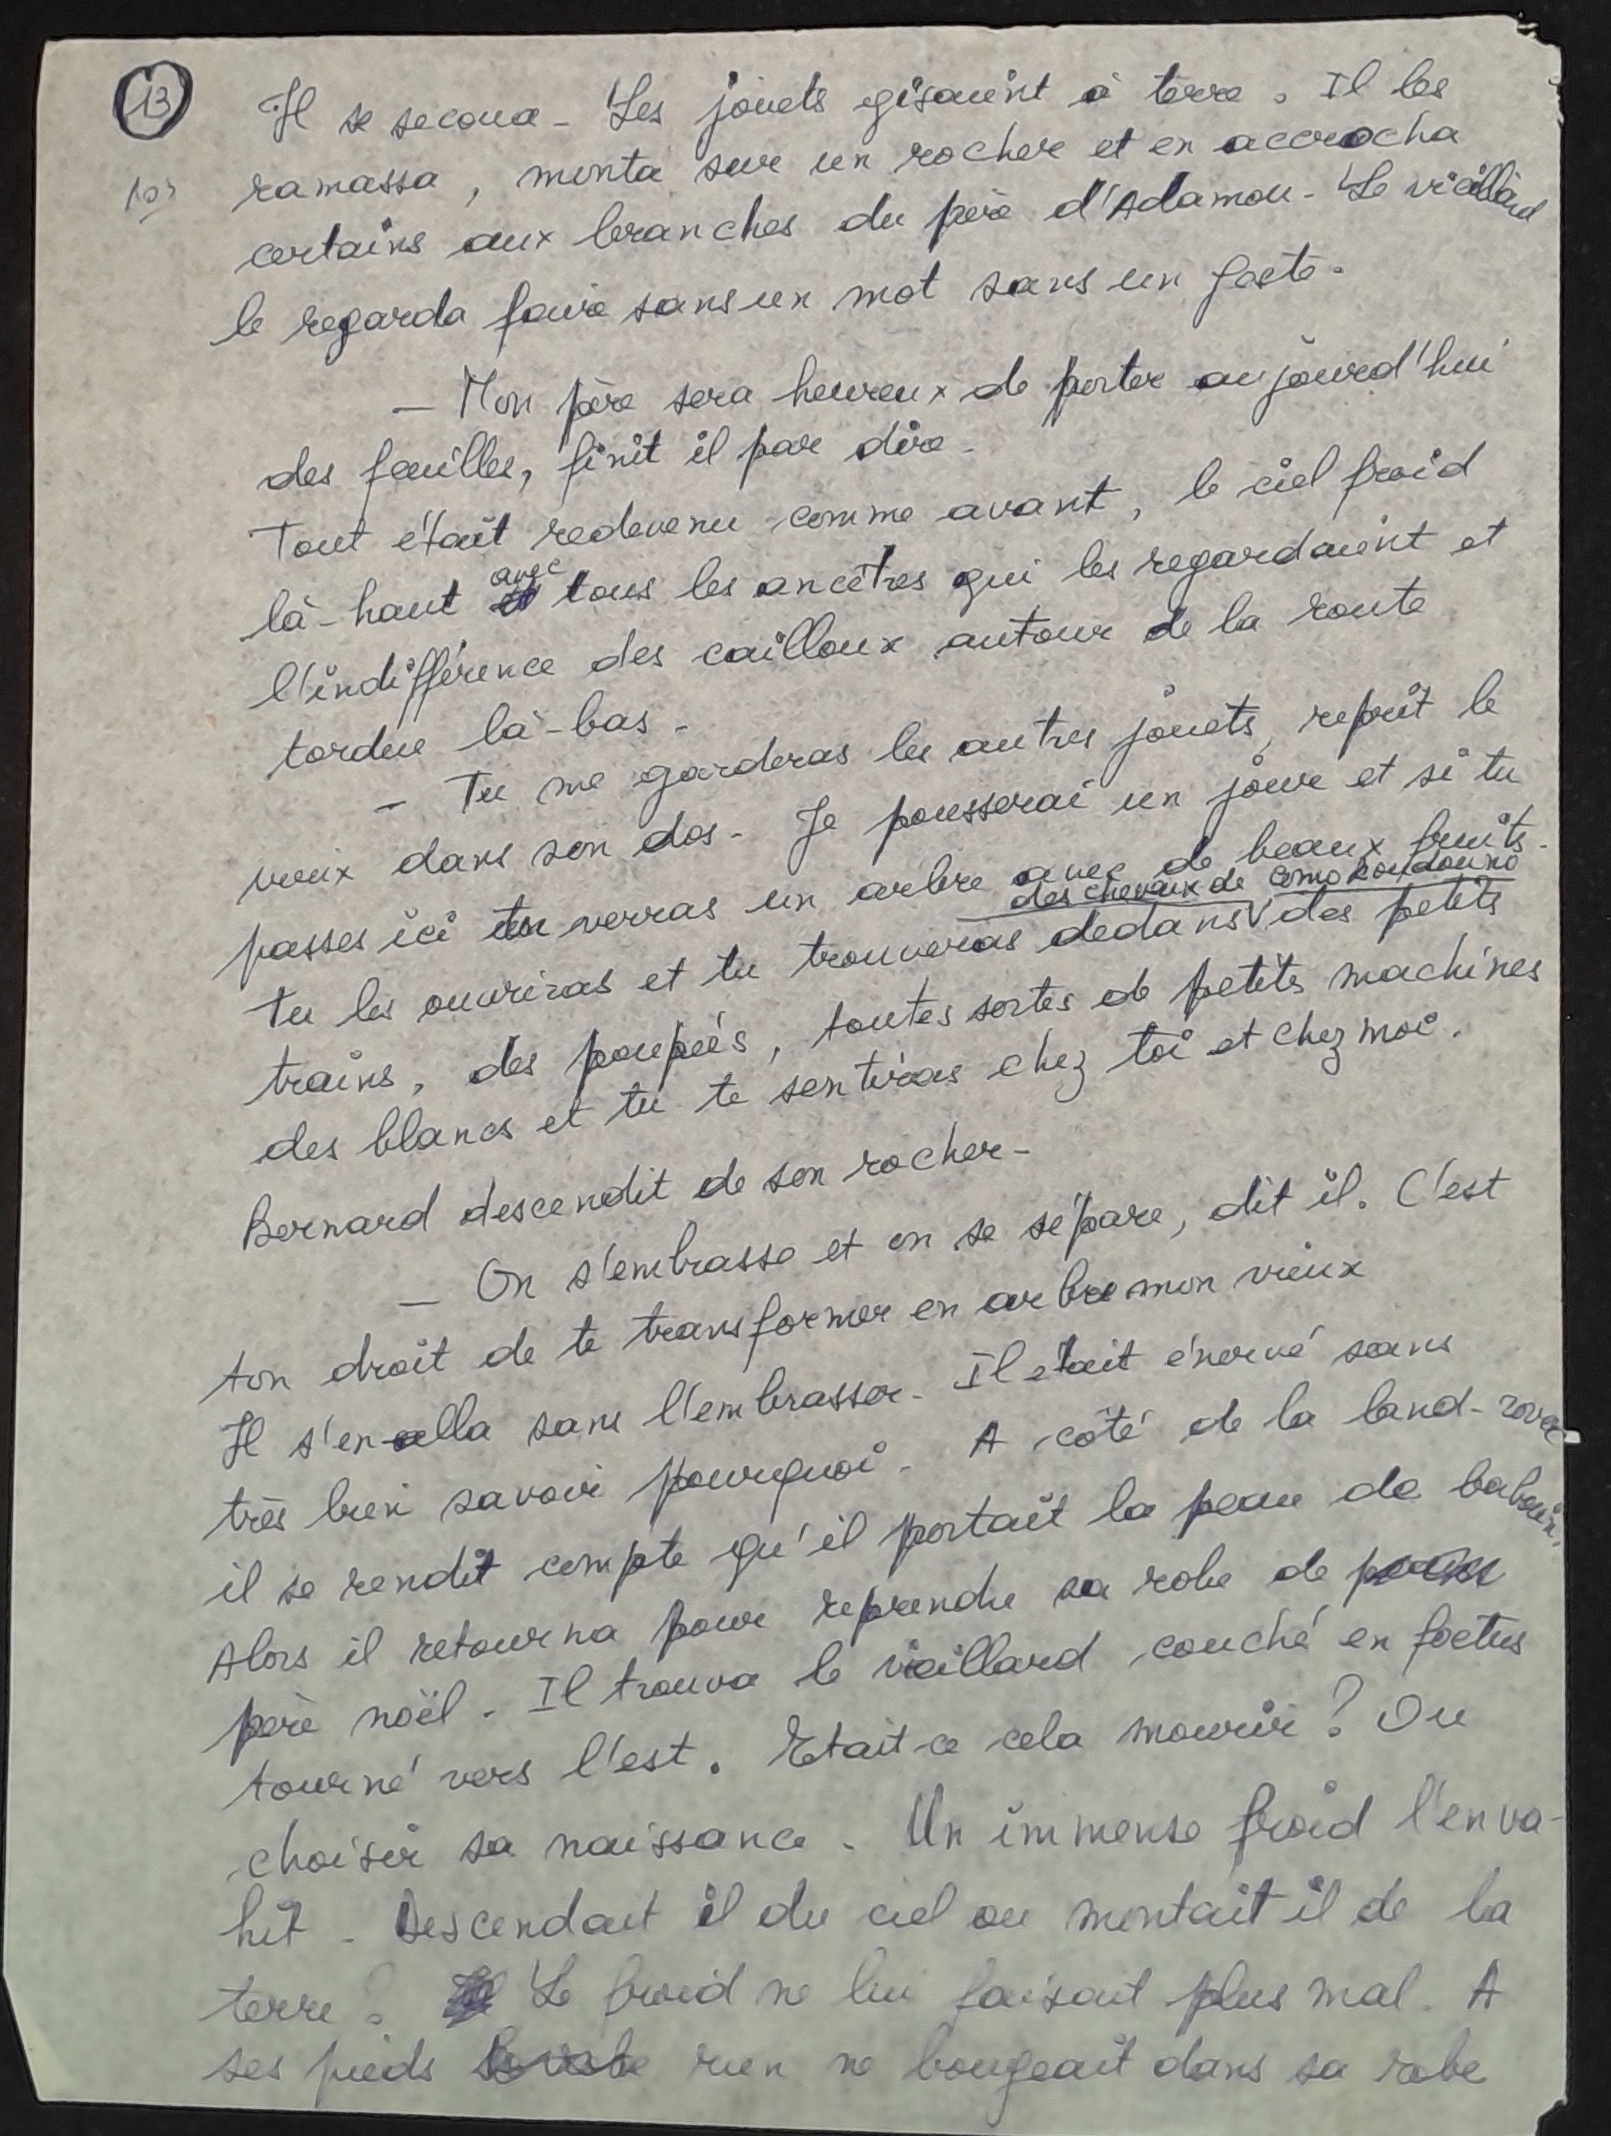 13
Il se secoua - Les jouets gisaient à terre. Il les
ramassa, monta sur un rocher et en accrocha
certains aux branches du père d'Adamou - Le vieillard
le regarda faire sans un mot sans un geste -
— Mon père sera heureux de porter aujourd'hui
des feuilles, finit il par dire -
Tout était redevenu comme avant, le ciel froid
avec
là-haut et tous les ancêtres qui les regardaient et
l'indifférence des cailloux autour de la route
tordue là-bas -
- Tu me garderas les autres jouets, reprit le
vieux dans son dos - Je pousserai un jour et si tu
passes ici tu verras un arbre avec de beaux fruits -
des chevaux de Como Koudouno
tu les ouvriras et tu trouveras dedans V des petits
trains, des poupées, toutes sortes de petits machines
des blancs et tu te sentiras chez toi et chez moi.
Bernard descendit de son rocher -
— On s'embrasse et on se sépare, dit il. C'est
ton droit de te transformer en arbre mon vieux
Il s'en alla sans l'embrasser - Il etait énervé sans
très bien savoir pourquoi - A côté de la land-rover
il se rendit compte qu'il portait la peau de babouin,
Alors il retourna pour reprendre sa robe de
père noël - Il trouva le vieillard couché en foetus
tourné vers l'est. Etait-ce cela mourir ? Ou
choisir sa naissance - Un immense froid l'enva-
hit - Descendait il du ciel ou montait il de la
terre ? Le froid ne lui faisait plus mal. A
ses pieds rien ne bougeait dans sa robe